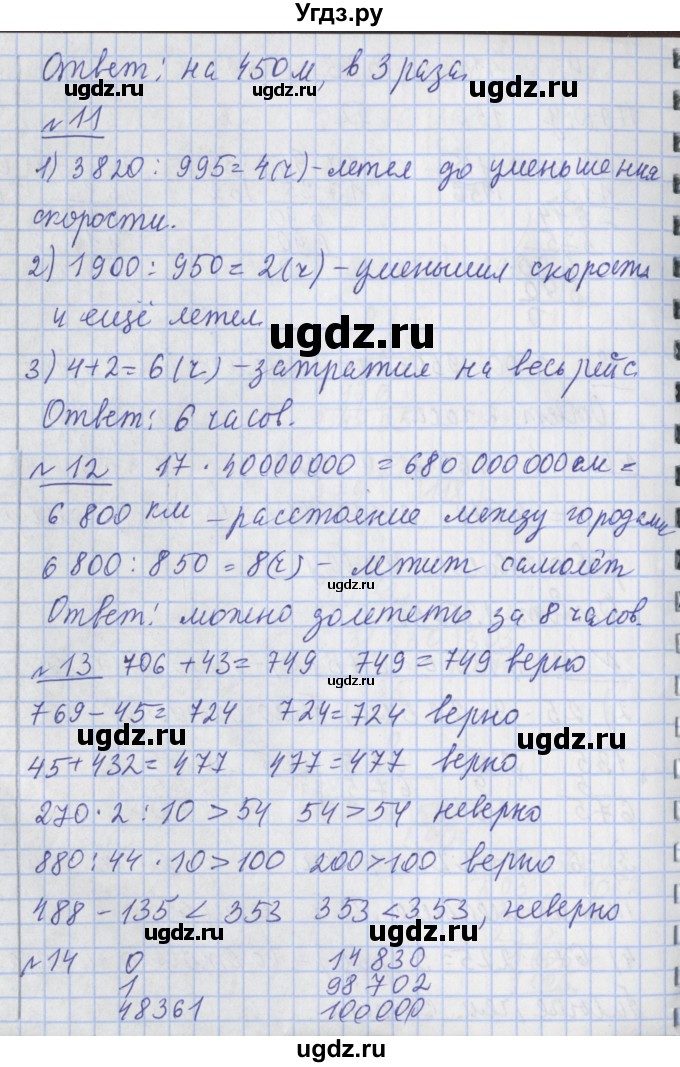 Угдз.ру
Ответ: на 450м, в 3 раза.
№ 11
1) 3820 : 995 = 4(ч) - летел до уменьшения
скорости.
2) 1900 : 950 = 2(ч) - уменьшил скорость
и ещё летел.
3) 4+2 = 6 (ч) - затратил на весь рейс.
Ответ: 6 часов.
№ 12 17 · 40000000 = 680 000000см =
6 800 км - расстояние между городами
6 800 : 850 = 8(ч) - летит самолёт
Ответ: можно долететь за 8 часов.
№ 13 706 + 43 = 749 749 = 749 верно
769 - 45 = 724 724 = 724 верно
45 + 432 = 477 477 = 477 верно
270 · 2 : 10 > 54 54 > 54 неверно
880 : 44 · 10 > 100 200 > 100 верно
488 - 135 < 353 353 < 353, неверно
№ 14 0 14 830
1 98 702
48361 100000
ugdz.ru
ugdz.ru
ugdz.ru
ugdz.ru
ugdz.ru
ugdz.ru
ugdz.ru
ugdz.ru
ugdz.ru
ugdz.ru
ugdz.ru
ugdz.ru
ugdz.ru
ugdz.ru